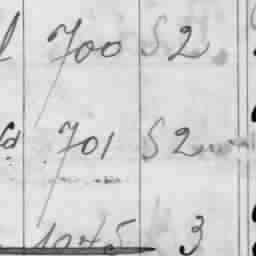 700 S 2
701 S 2
1045 3